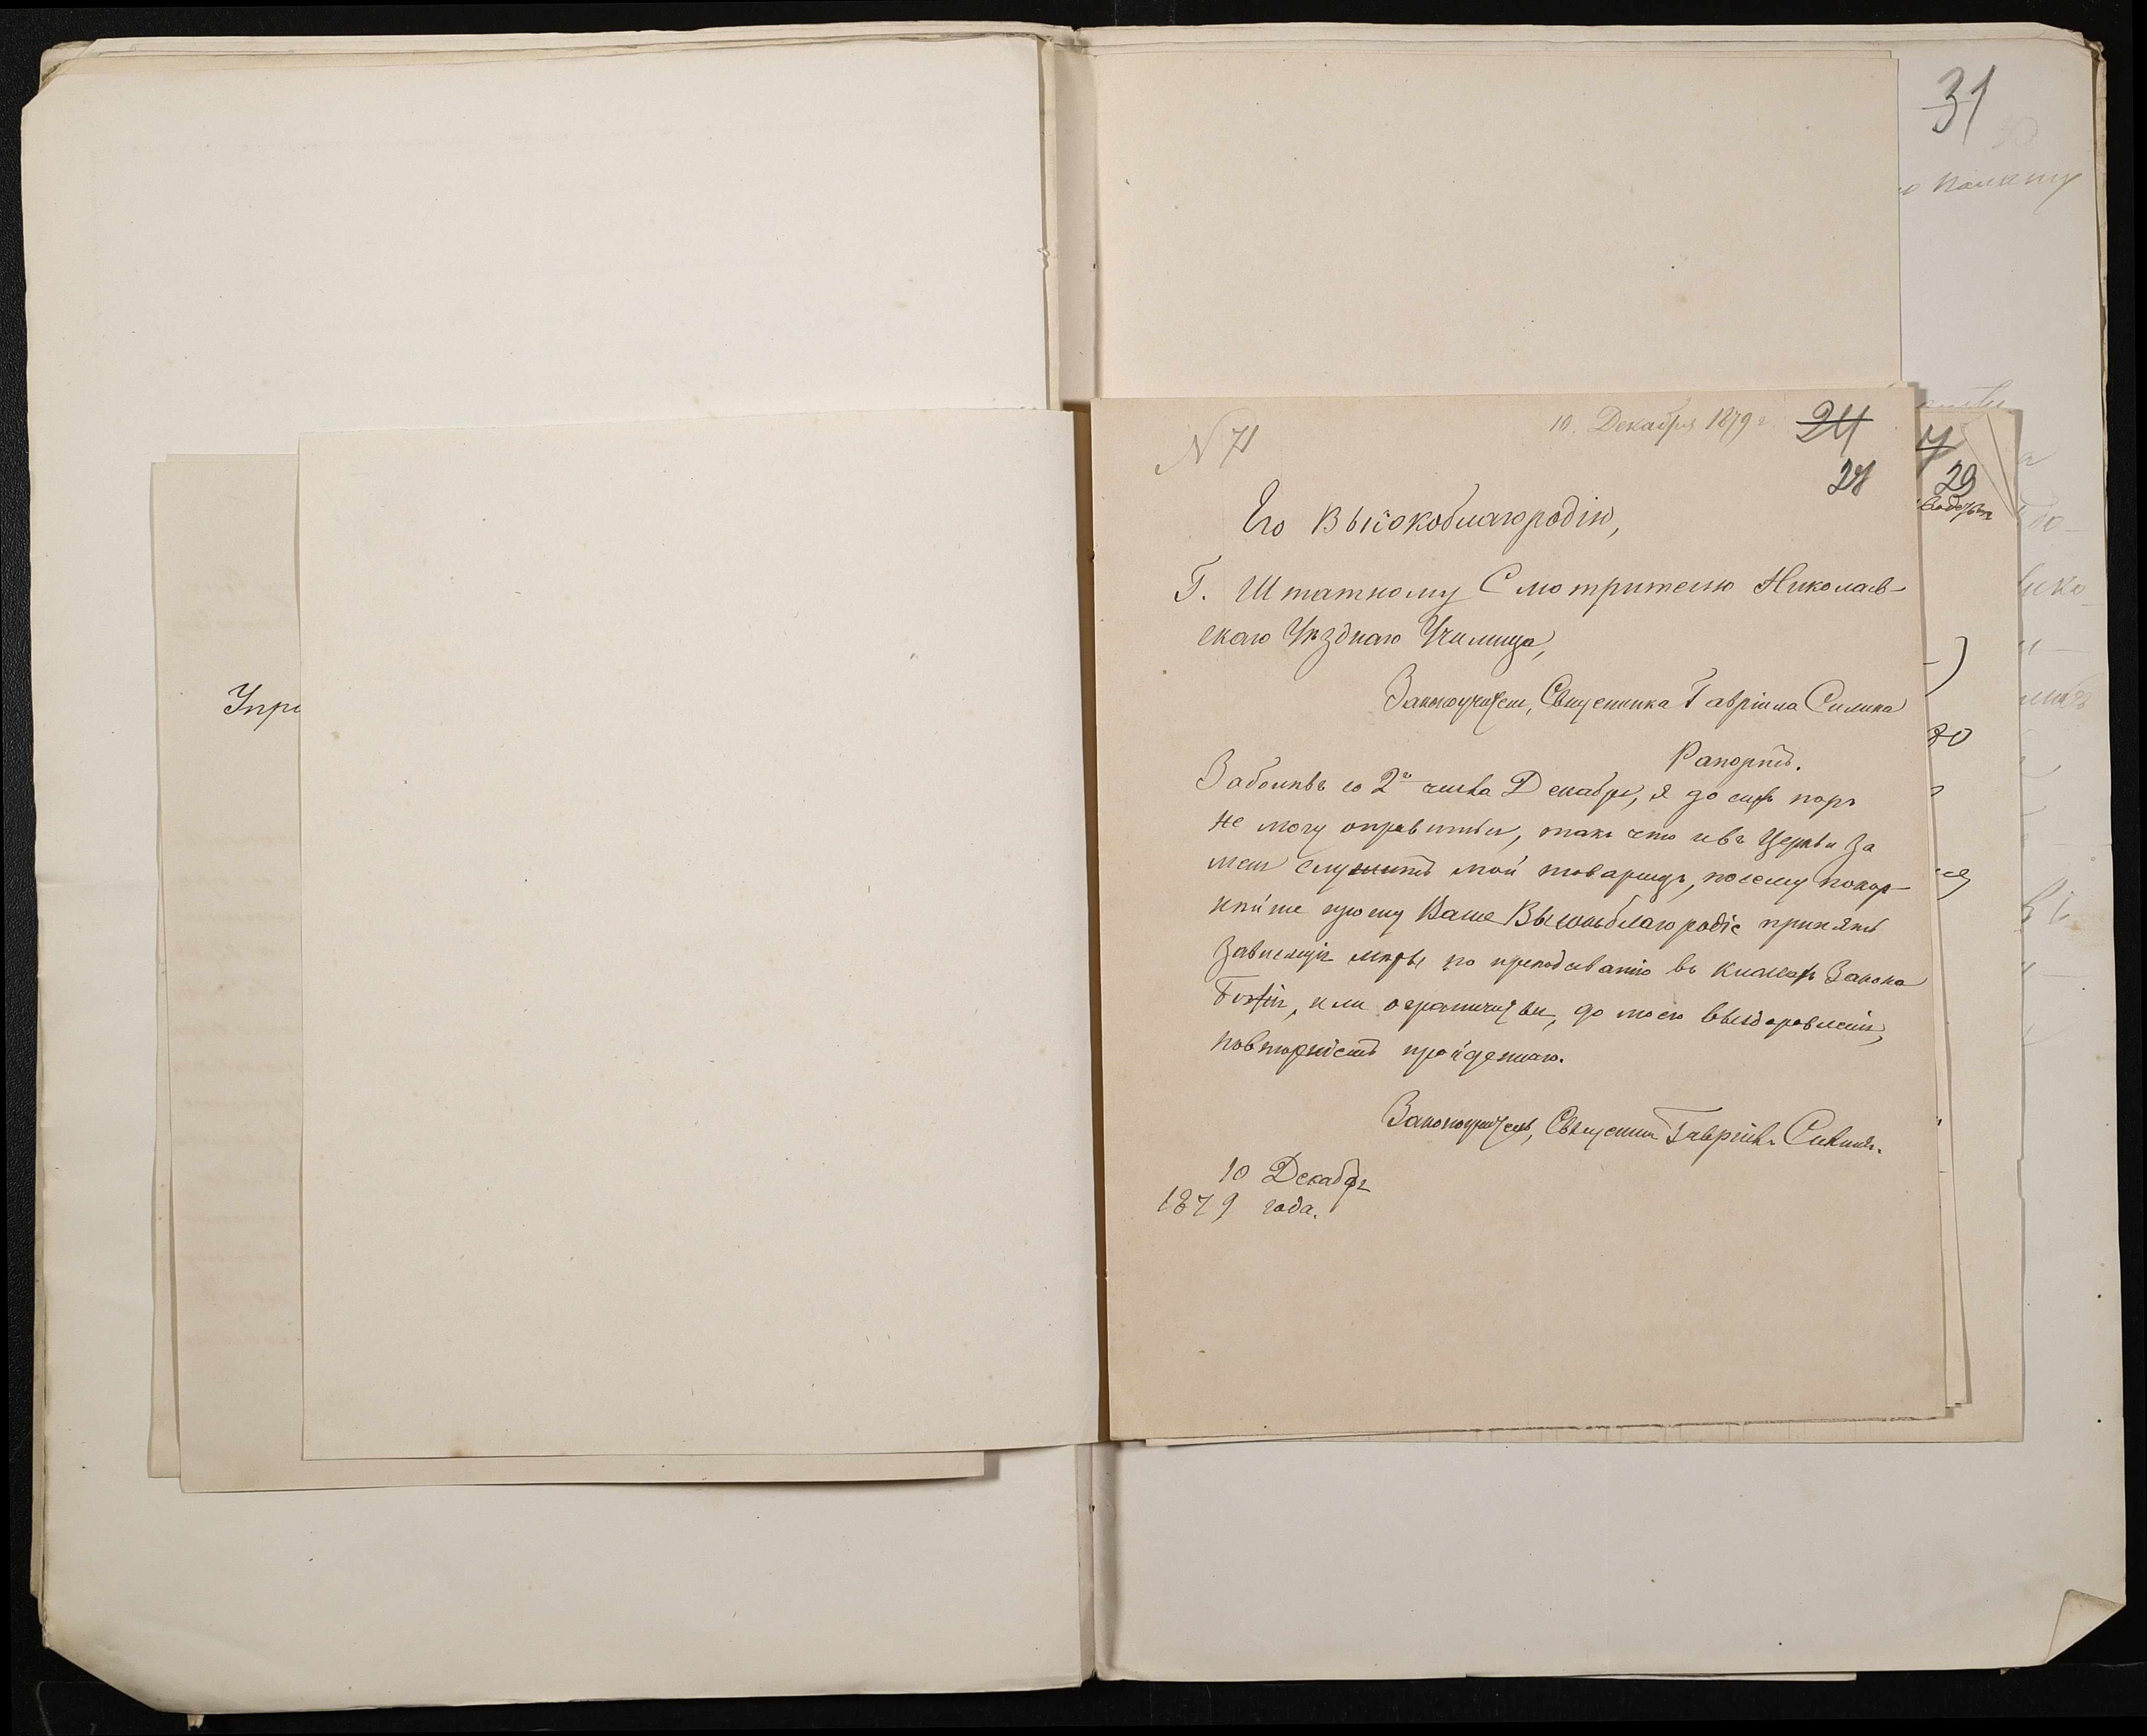 31
Упр
N 71
10. Декабря 1879 г.
24
28
29
Его Высокоблагородію,
Г. Штатному Смотрителю Николаев-
скаго Уѣзднаго Училища,
Законоучителя, Священника Гавріила Силина
Рапортъ.
Заболѣвъ со 2го числа Декабря, я до сихъ поръ
не могу оправиться, такъ что и въ Церкви за
меня служитъ мой товарищъ, посему покор-
нѣйше прошу Ваше Высокоблагородіе принять
зависящія мѣры по преподаванію въ классахъ Закона
Божія, или ограничиться, до моего выздоровленія,
повтореніемъ пройденнаго.
Законоучитель, Священникъ Гавріилъ Силинъ.
10 Декабря
1879 года.